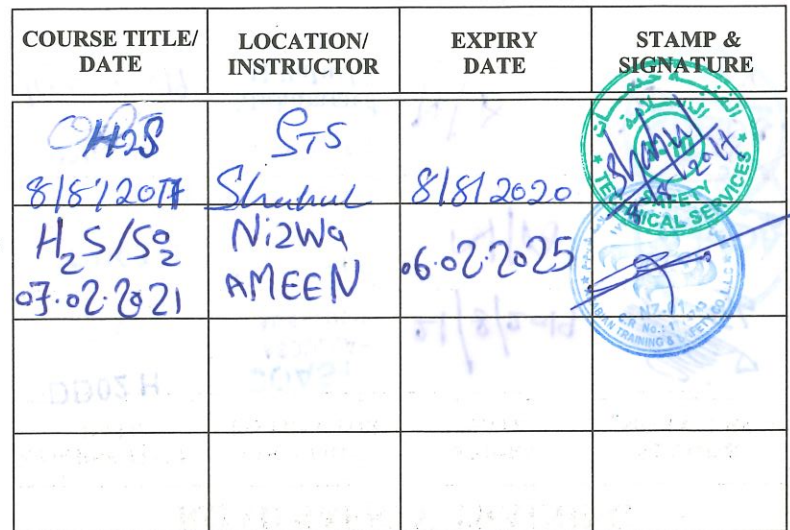 COURSE TITLE/ DATE
LOCATION/ INSTRUCTOR
EXPIRY DATE
STAMP & SIGNATURE
H2S
STS
8/8/2017
Shuhul
8/8/2020
SAFETY
TECHNICAL SERVICES
H2S/SO2
Nizwa
07.02.2021
AMEEN
06.02.2025
TRAINING & SAFETY CO. L.L.C
C.R No.: